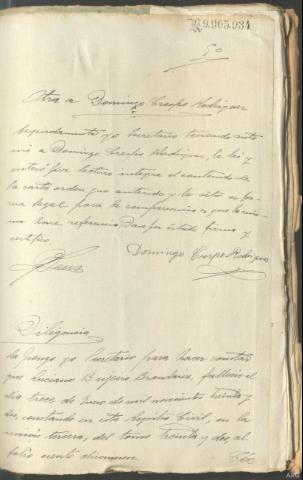 R9.905.934
5º
Otra a Domingo Crespo Rodriguez
Seguidamente yo Secretario teniendo ante
mi a Domingo Crespo Rodriguez, le lei y
enteré por lectura integra el contenido de
la carta orden que antecede y le cito en for-
ma legal para la comparencia a que la mis-
ma hace referencia Doy por enterado firma y
certifico.
Domingo Crespo Rodriguez
Diligencia
La pongo yo Secretario para hacer constar
que Luciano Brandariz, fallecio el
dia trece de Enero de mil novecientos treinta y
dos, constando en este Registro Civil, en la
sección tercera, del tomo treinta y dos, al
folio ciento